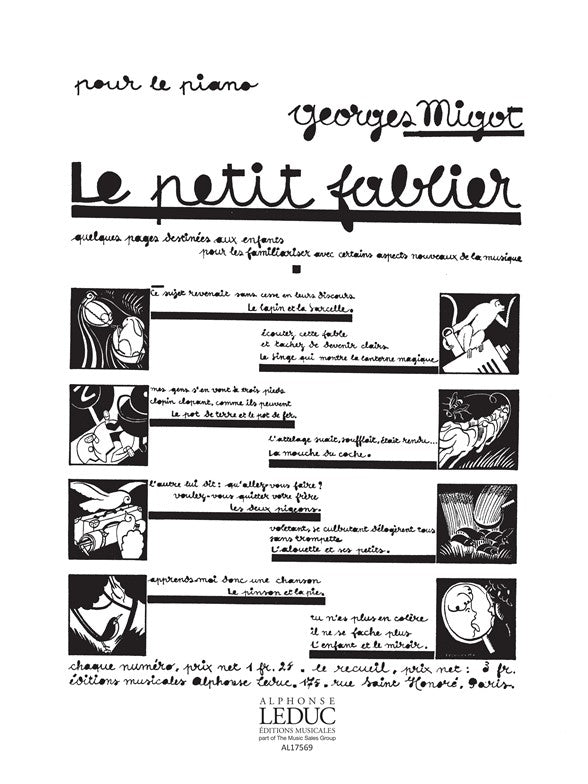 pour le piano
Georges Migot
Le petit fablier
quelques pages destinées aux enfants
pour les familiariser avec certains aspects nouveaux de la musique
Ce sujet revenait sans cesse en leurs discours
Le lapin et la Sarcelle.
écoutez cette fable
et tachez de devenir clairs.
Le Singe qui montre la lanterne magique
mes gens s'en vont à trois pieds
clopin clopant, comme ils peuvent
Le pot de terre et le pot de fer.
l'attelage suait, soufflait, était rendu...
La mouche du coche.
l'autre lui dit: qu'allez-vous faire?
voulez-vous quitter votre frère
les deux pigeons.
voletant, se culbutant délogèrent tous
sans trompette
L'alouette et ses petits.
apprends-moi donc une chanson
Le pinson et la pie.
tu n'es plus en colère
il ne se fache plus
L'enfant et le miroir.
chaque numéro, prix net 1 fr. 25. le recueil, prix net: 3 fr.
éditions musicales Alphonse Leduc. 175. rue Saint Honoré, Paris.
ALPHONSE
LEDUC
ÉDITIONS MUSICALES
part of The Music Sales Group
AL17569